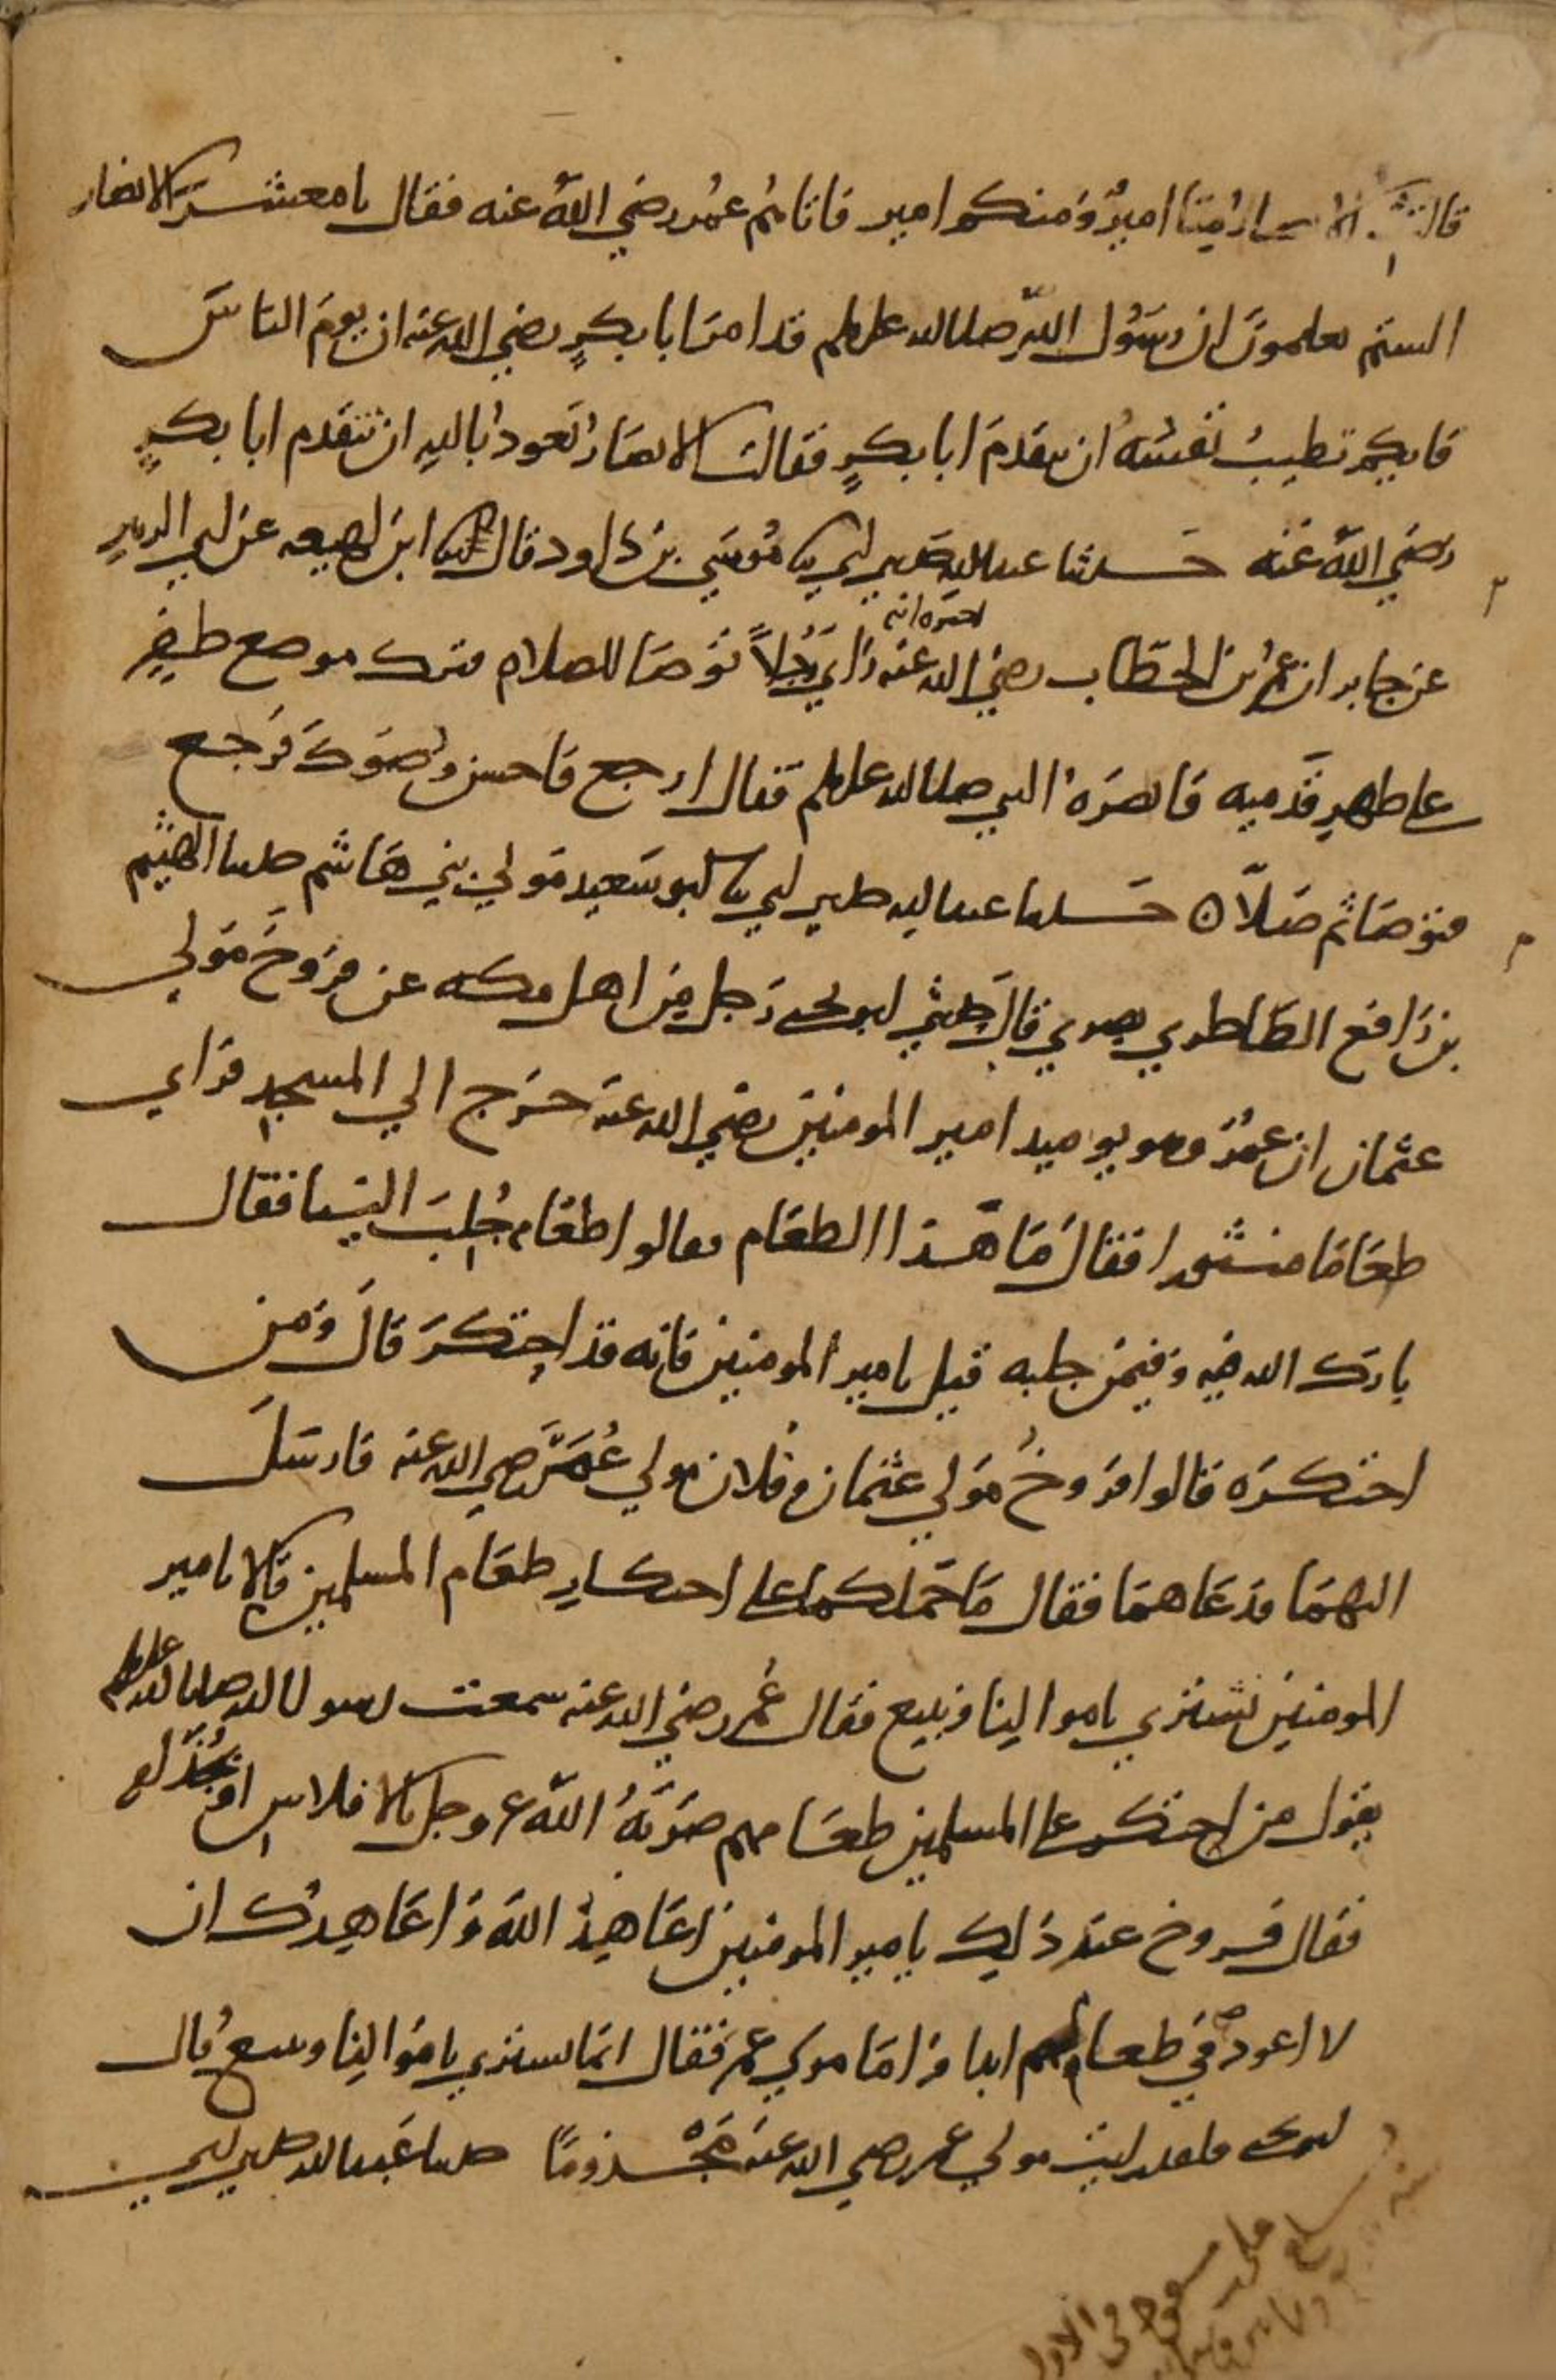 قالت الانصار منا اميرٌ ومنكم امير فاتاهم عمُر رضي الله عنه فقال يا معشر الانصار
الستم تعلمون ان رسول الله صلى الله عليه وسلم قد امر ابا بكرٍ رضي الله عنه ان يوم الناس
فايكم تطيبُ نفسه ان يتقدم ابا بكرٍ فقالت الانصار نعوذ بالله ان نتقدم ابا بكرٍ
رضي الله عنه حدثنا عبد الله حدثني ابي ثنا موسي بن داود قال ثنا ابن لهيعه عن ابي الزبير
عن جابر ان عمر بن الخطاب رضي الله عنه اخبره انه راي رجلاً توضا للصلاه فترك موضع ظفرٍ
على ظهر قدميه فابصره النبي صلى الله عليه وسلم فقال ارجع فاحسن وضوك فرجع
فتوضا ثم صلا ه حدثنا عبد الله حدثني ابي ثنا ابو سعيد مولي بني هاشم حدثنا الهيثم
بن رافع الطاطري بصري قال حدثني ابو يحي رجل من اهل مكه عن فروخ مولي
عثمان ان عمر وهو يوميد امير المومنين رضي الله عنه خرج الي المسجد فراي
طعاما منثورا فقال ما هذا الطعام فقالوا طعام جُلبَ الينا فقال
بارك الله فيه وفيمن جلبه قيل يامير المومنين فانه قد احتكر قال ومن
احتكره قالوا فروخ مولي عثمان وفلان مولي عُمر رضي الله عنه فارسل
اليهما فدعاهما فقال ما حملكما على احتكار طعام المسلمين قالا يامير
المومنين نشتري باموالنا ونبيع فقال عمر رضي الله عنه سمعت رسول الله صلى الله عليه وسلم
يقول من احتكر على المسلمين طعامهم ضربهُ الله عز وجل بالافلاس او بجذام
فقال فروخ عند ذلك يامير المومنين اعاهد الله واعاهدك ان
لا اعود في طعامهم ابدا واما مولي عمر فقال انما نشتري باموالنا ونبيع قال
ابو يحي فلقد رايت مولي عمر رضي الله عنه مجذوما حدثنا عبد الله حدثني ابي